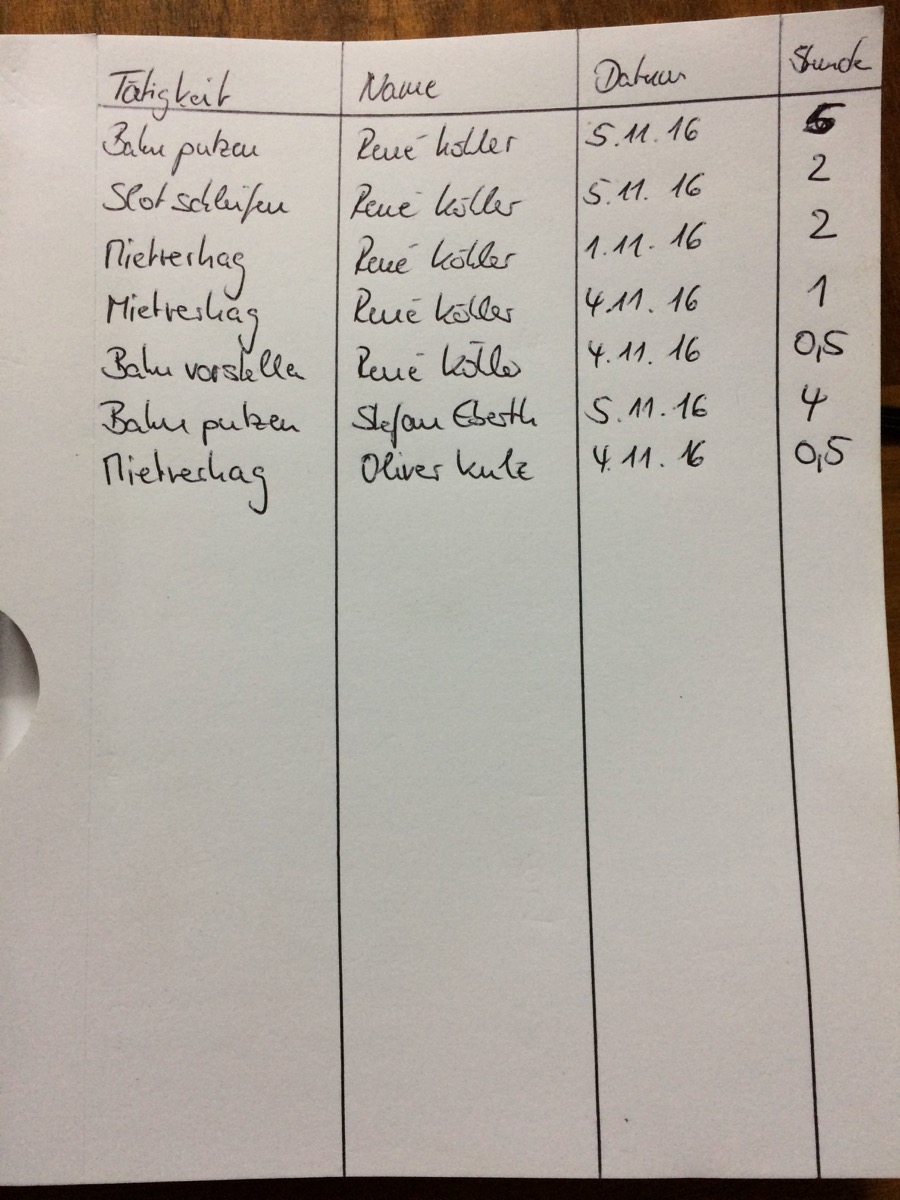 Tätigkeit Name Datum Stunde
Bahn putzen René Köhler 5.11.16 6
Slot schleifen René Köhler 5.11.16 2
Mietvertrag René Köhler 1.11.16 2
Mietvertrag René Köhler 4.11.16 1
Bahn vorstellen René Köhler 4.11.16 0,5
Bahn putzen Stefan Eberth 5.11.16 4
Mietvertrag Oliver Kulz 4.11.16 0,5